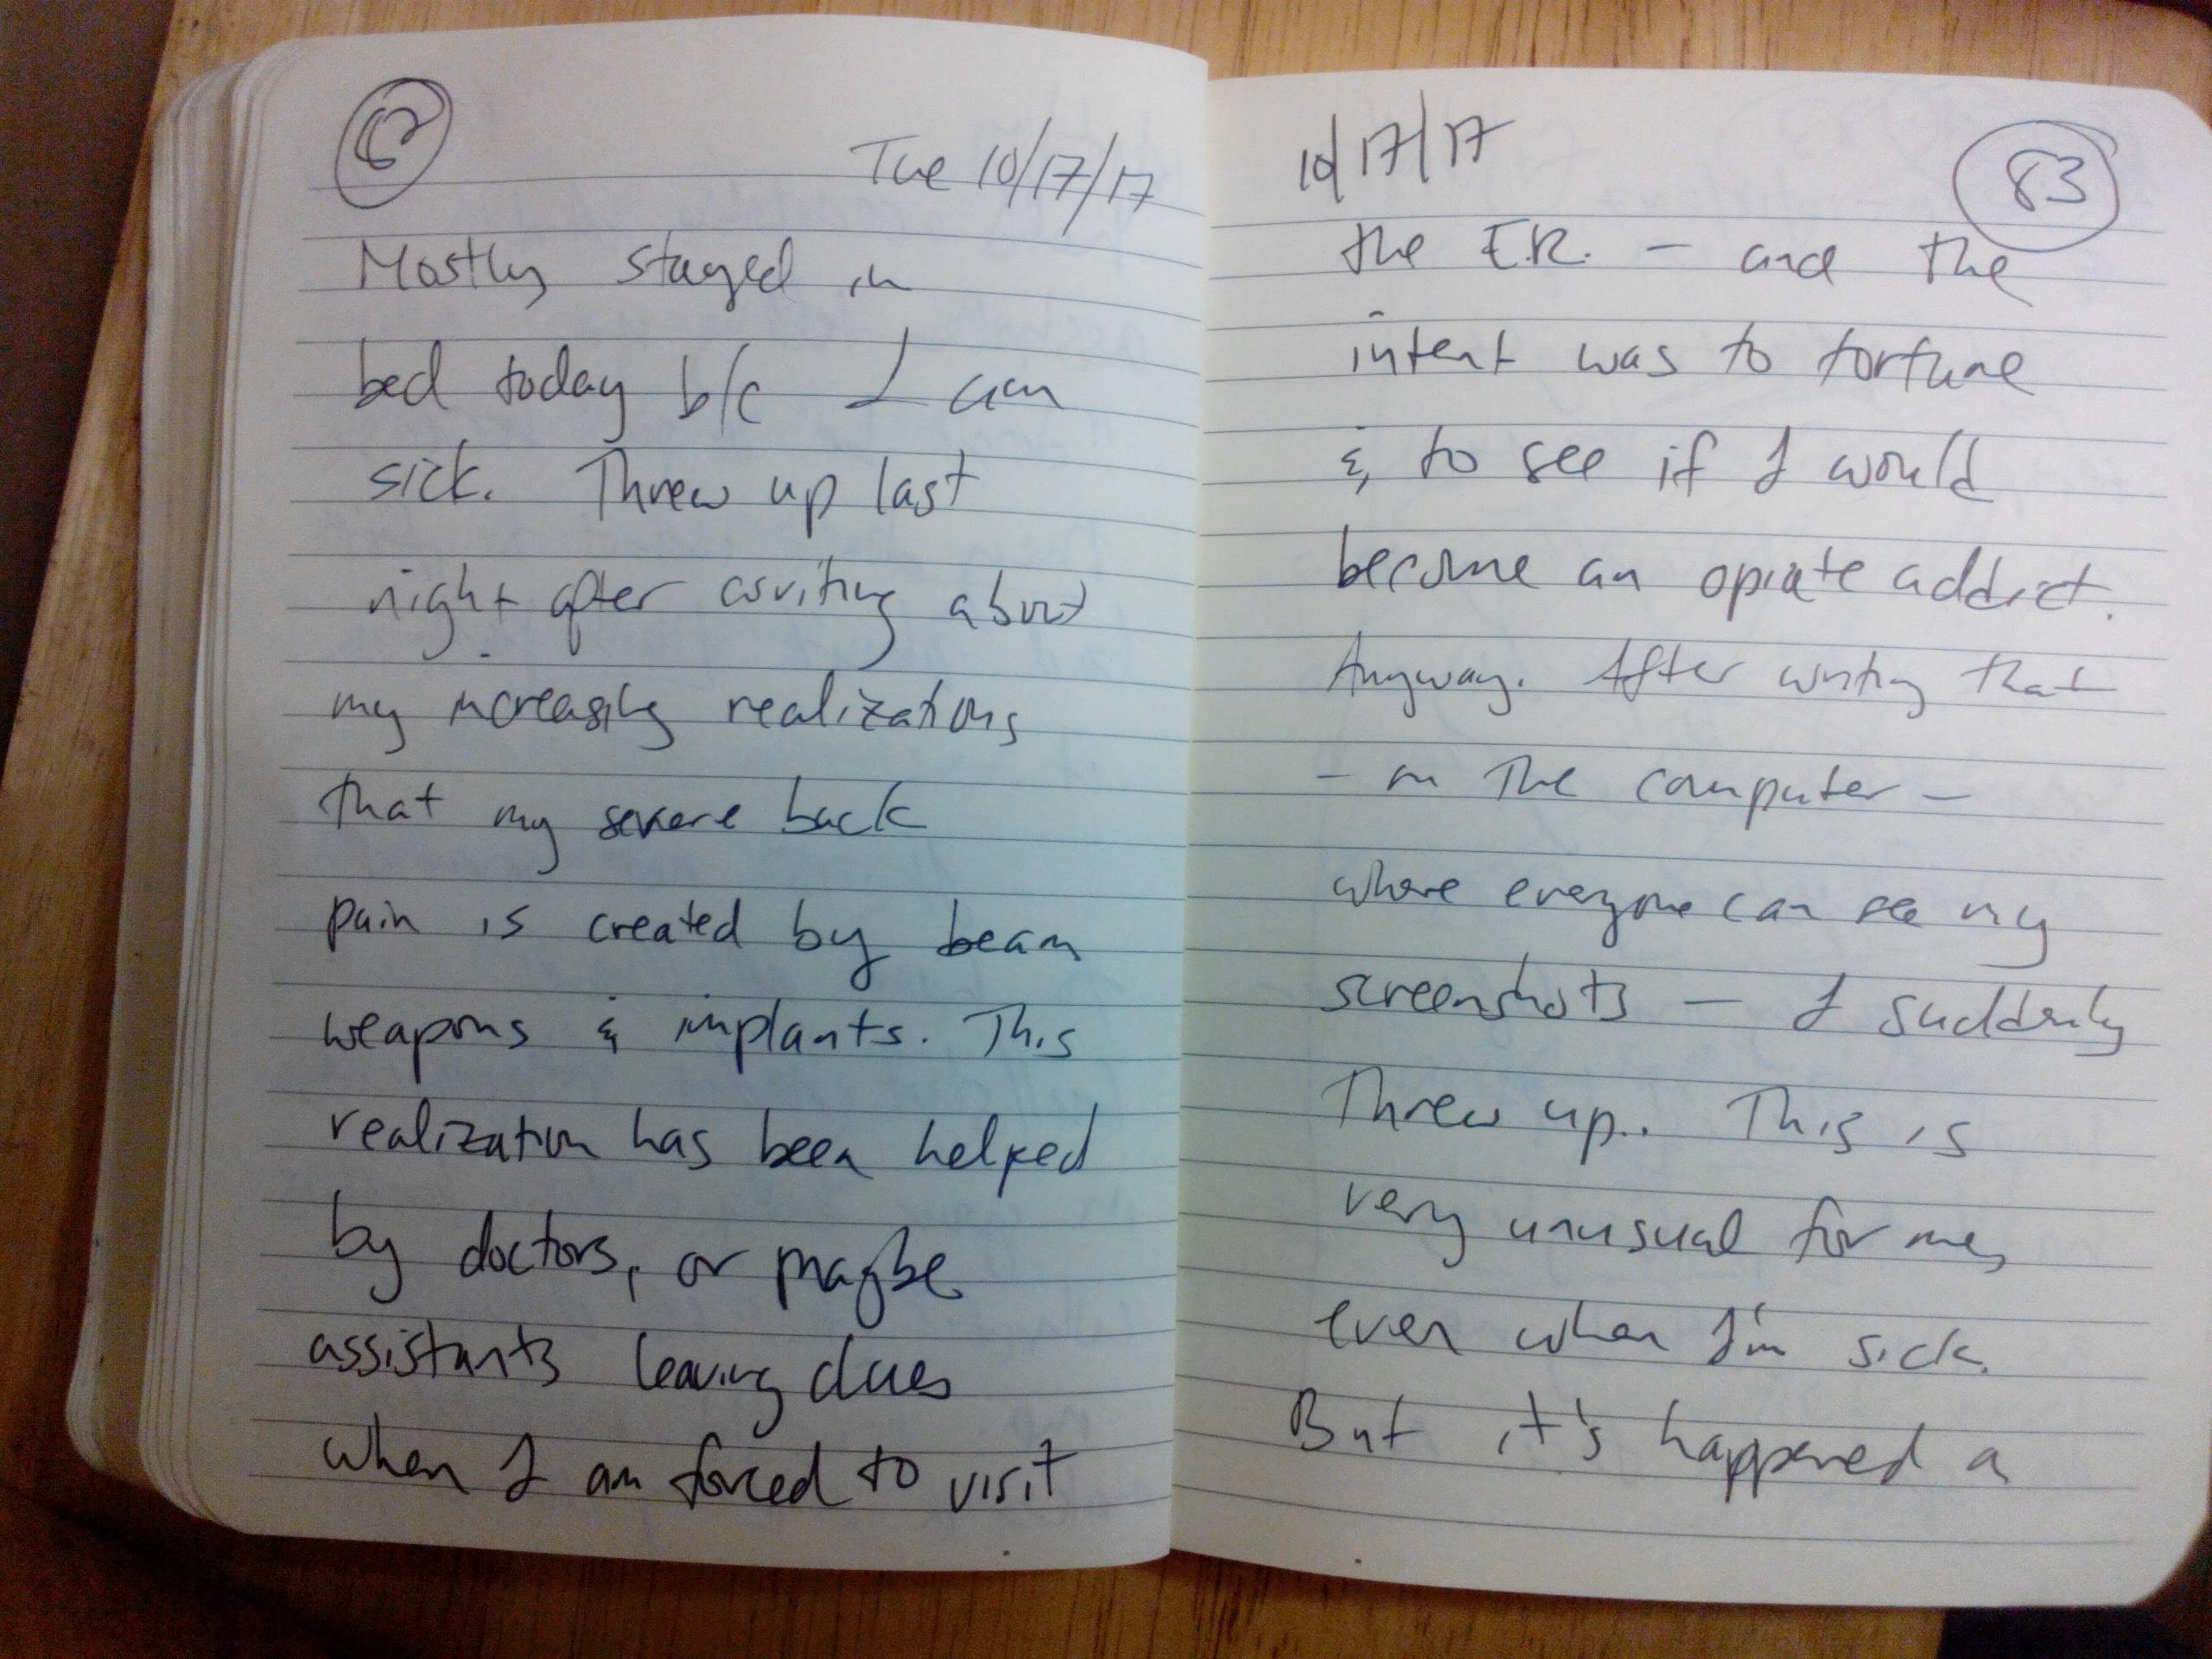 Tue 10/17/17
Mostly stayed in
bed today b/c I am
sick. Threw up last
night after writing about
my increasing realizations
that my severe back
pain is created by beam
weapons & implants. This
realization has been helped
by doctors, or maybe
assistants leaving clues
when I am forced to visit
10/17/17
83
the E.R. — and the
intent was to torture
& to see if I would
become an opiate addict.
Anyway. After writing that
– on the computer –
where everyone can see my
screenshots — I suddenly
Threw up.. This is
very unusual for me,
even when I'm sick.
But it's happened a